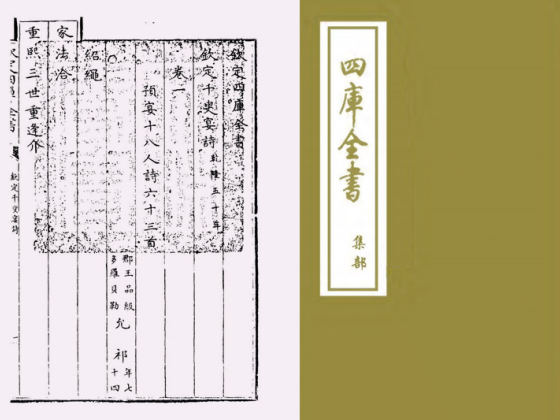 欽定四庫全書
欽定千叟宴詩 乾隆五十年
卷一
預宴十八人詩六十三首
郡王品級
多羅貝勒
允祁
年七
十四
紹繩
家法洽
重熙三世重逢
欽定千叟宴詩
四庫全書
集部